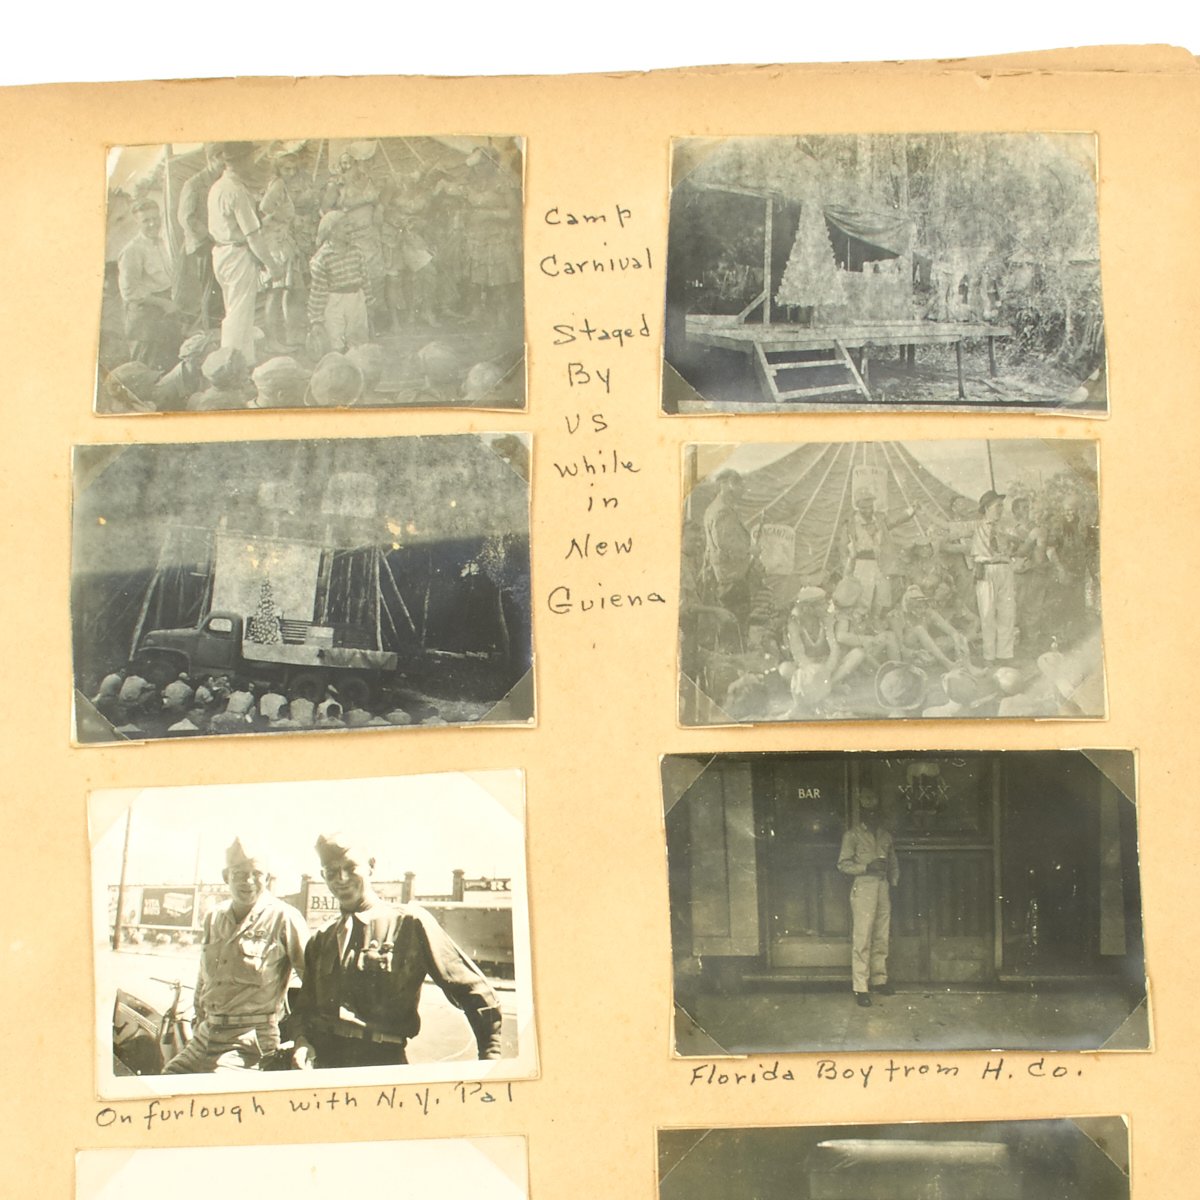 Camp
Carnival
Staged
By
us
while
in
New
Guiena
BAR
XXX
On furlough with N.Y. Pal
Florida Boy from H. Co.